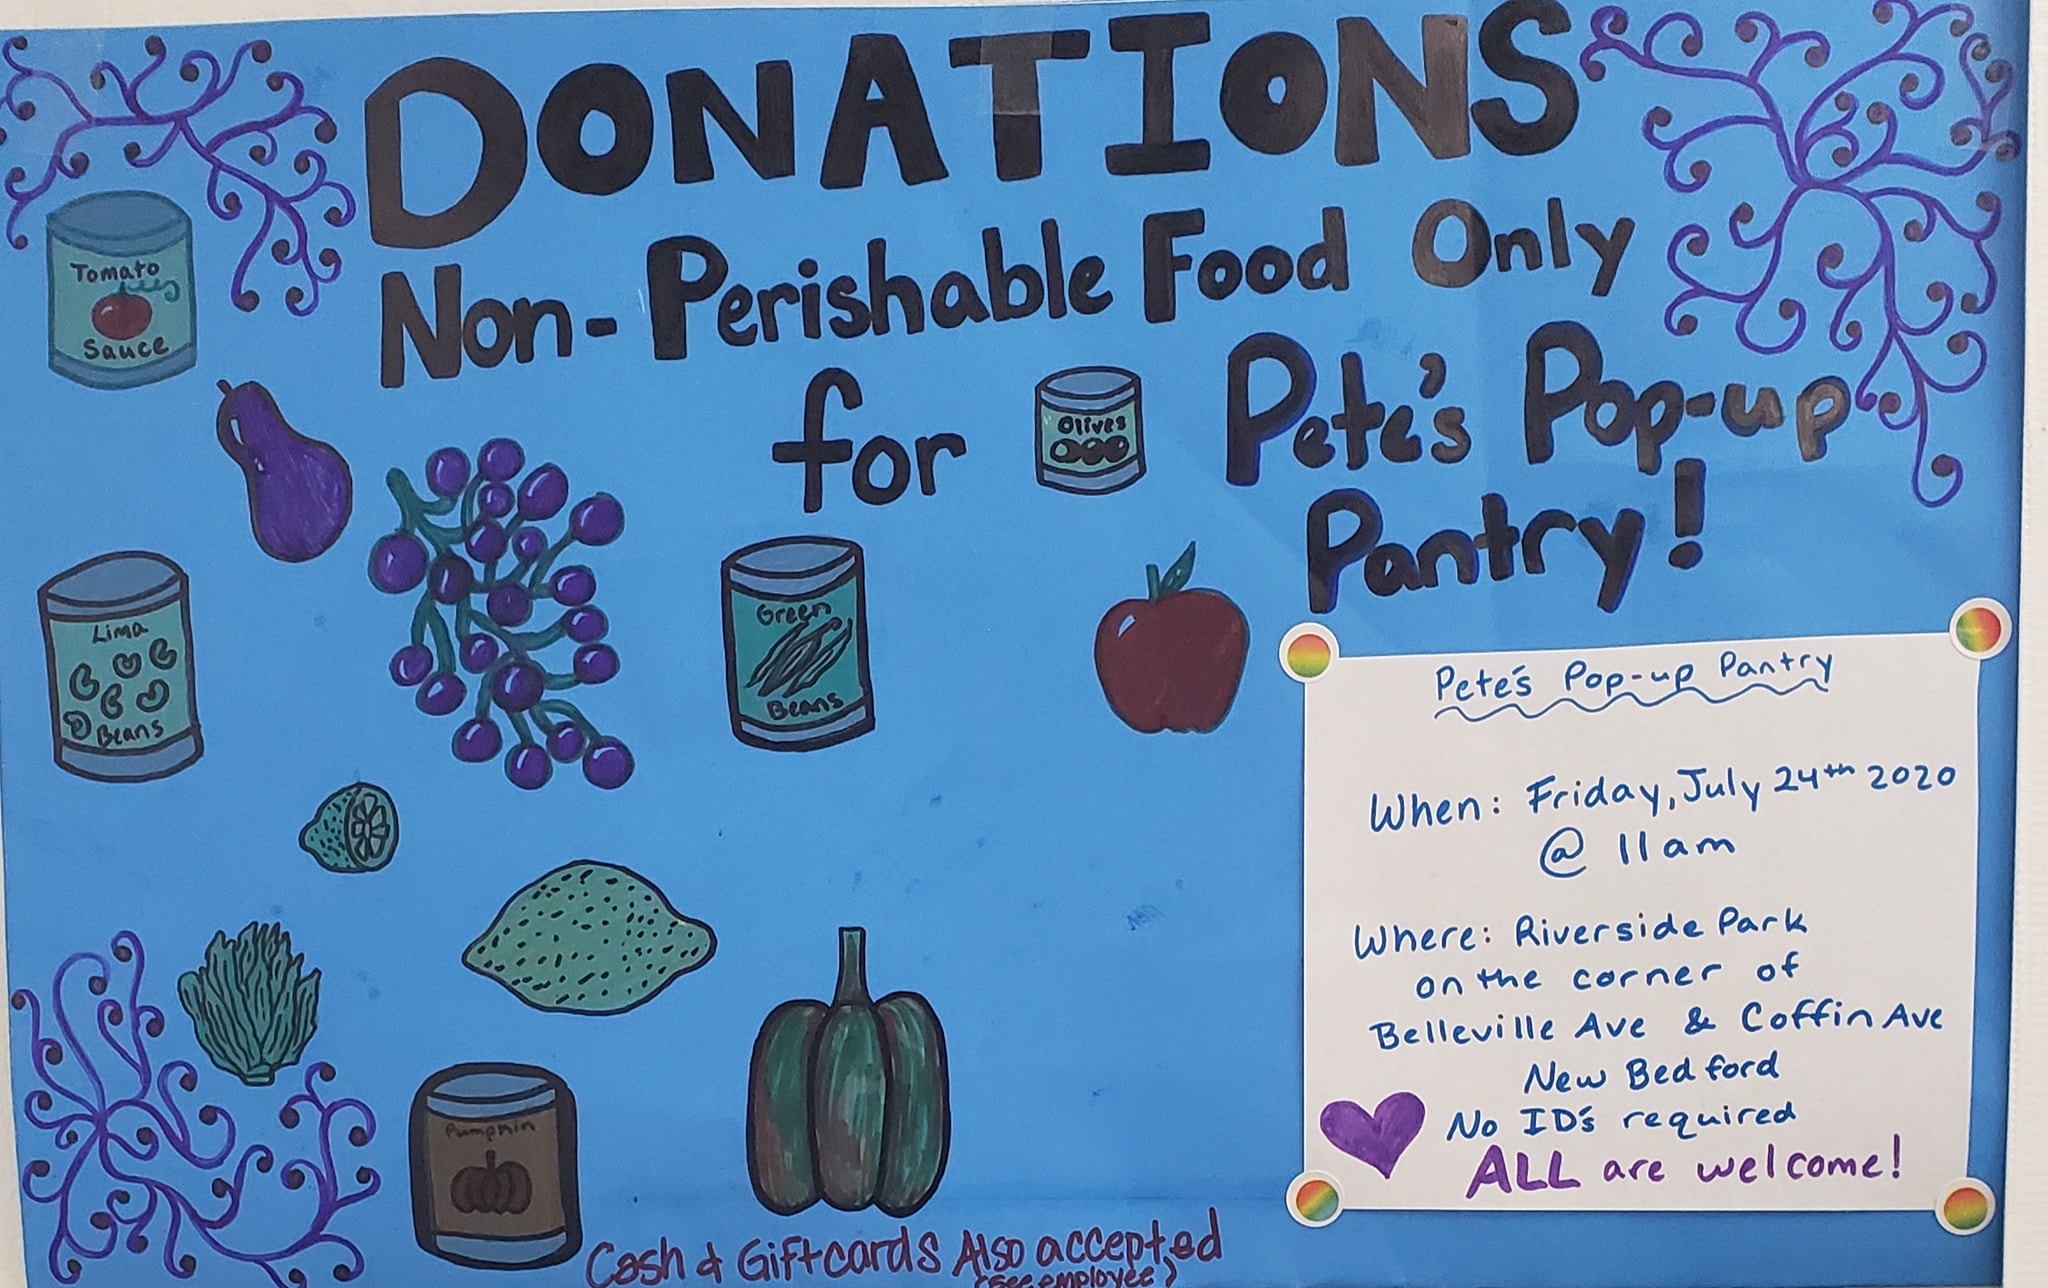 DONATIONS
Non-Perishable Food Only
for Pete's Pop-up
Pantry!
Tomato
Sauce
Olives
Lima
Beans
Green
Beans
Pumpkin
Pete's Pop-up Pantry
When: Friday, July 24th 2020
@ 11am
Where: Riverside Park
on the corner of
Belleville Ave & Coffin Ave
New Bedford
No ID's required
ALL are welcome!
Cash & Giftcards Also accepted
(see employee)